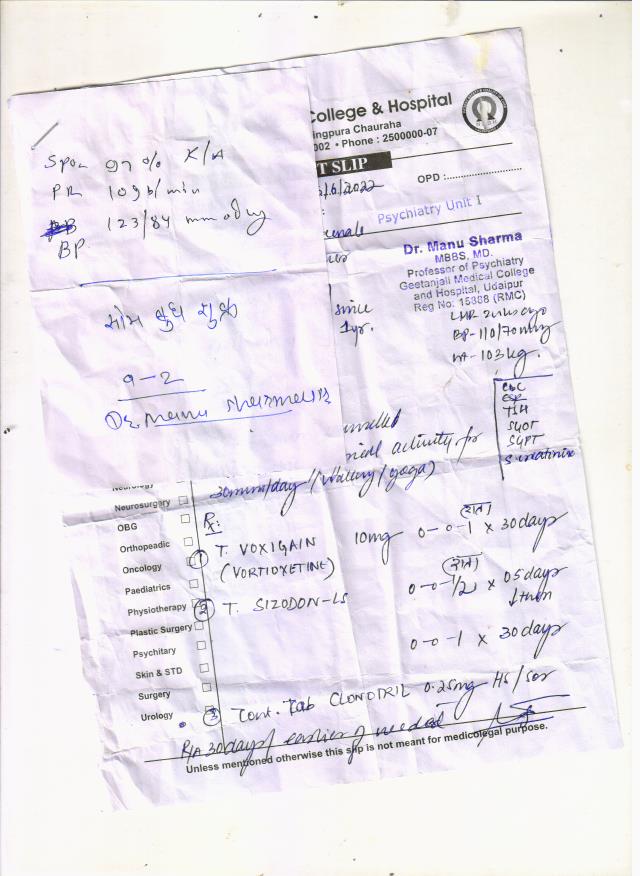 SpO2 97% R/A
PR 109b/min
BP
123/84 mmofHg
सोम बुध शुक्र
9-2
Dr. Manu Sharma
College & Hospital
ingpura Chauraha
002 • Phone : 2500000-07
T SLIP
/6/2022
OPD :
Psychiatry Unit I
Dr. Manu Sharma
MBBS, MD.
Professor of Psychiatry
Geetanjali Medical College
and Hospital, Udaipur
Reg No: 15388 (RMC)
since
1yr.
BP-110/70mmHg
wt-103kg.
CBC
TSH
SGOT
SGPT
S. creatinine
activity for
30mins/day (Walking/yoga)
Neurology
Neurosurgery
OBG
Orthopeadic
Oncology
Paediatrics
Physiotherapy
Plastic Surgery
Psychitary
Skin & STD
Surgery
Urology
Rx:
रात
① T. VOXIGAIN 10mg 0-0-1 x 30days
(VORTIOXETINE)
रात
② T. SIZODON-LS 0-0-1/2 x 05days
↓then
0-0-1 x 30days
③ Cont. Tab CLONOTRIL 0.25mg HS/SOS
R/A 30days/earlier if needed
Unless mentioned otherwise this slip is not meant for medicolegal purpose.